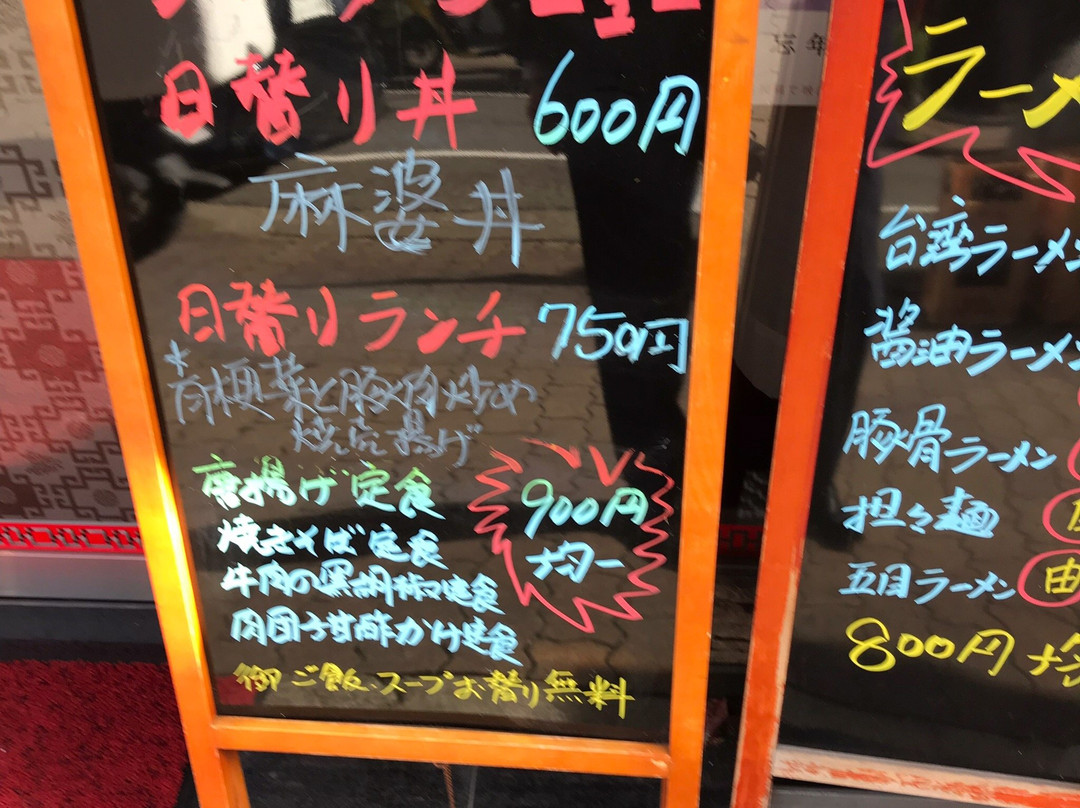 日替り丼 600円
麻婆丼
日替りランチ 750円
*青梗菜と豚肉炒め
焼売揚げ
唐揚げ定食
焼きそば定食
牛肉の黒胡椒定食
肉団子甘酢かけ定食
900円
均一
御ご飯・スープお替り無料
忘年
ラーメ
台湾ラーメン
醤油ラーメン
豚骨ラーメン
担々麺
五目ラーメン
800円